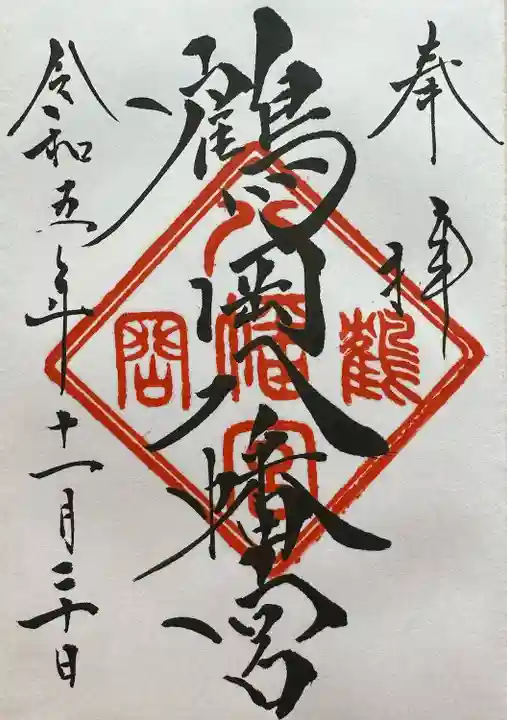 奉拝
鶴岡八幡宮
鶴
岡
八幡宮
令和五年十一月二十日